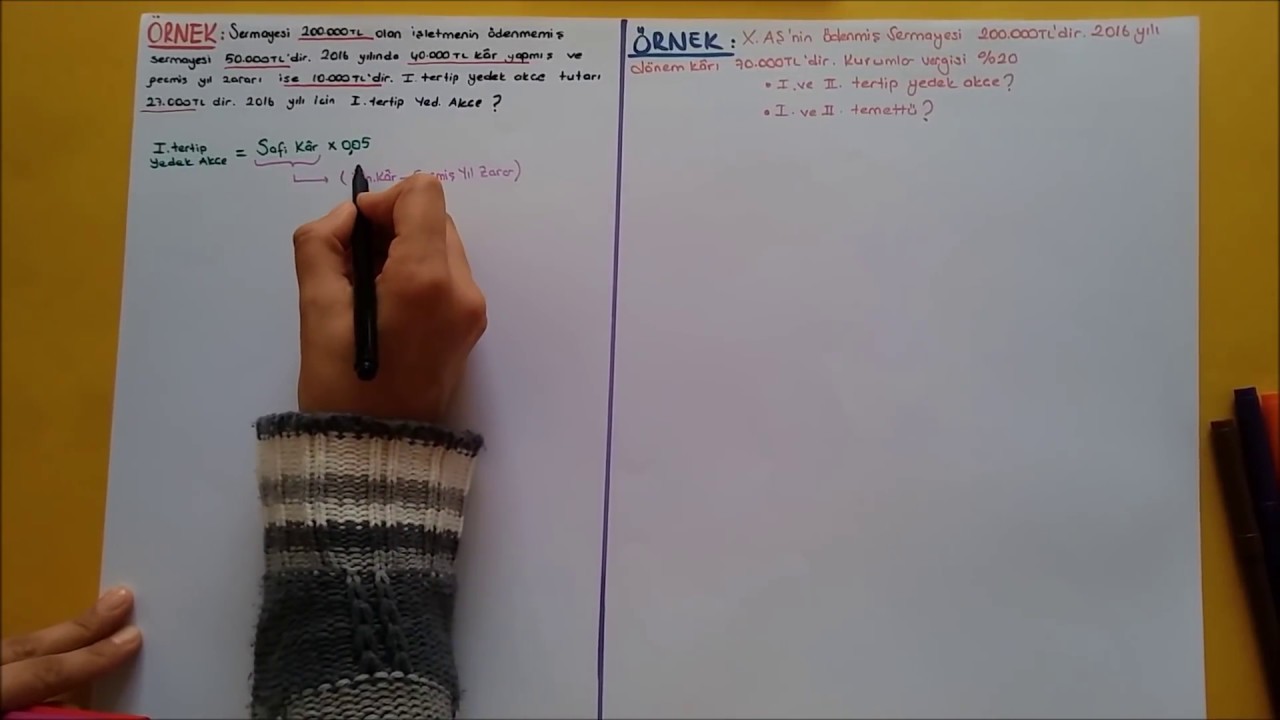 ÖRNEK: Sermayesi 200.000TL olan işletmenin ödenmemiş
sermayesi 50.000TL'dir. 2016 yılında 40.000TL kâr yapmış ve
geçmiş yıl zararı ise 10.000TL'dir. I. tertip yedek akçe tutarı
27.000TL dir. 2016 yılı için I. tertip Yed. Akçe ?
I. tertip
Yedek Akçe = Safi Kâr x 0,05
Kâr - Yıl Zarar)
ÖRNEK: X. AŞ'nin ödenmiş Sermayesi 200.000TL'dir. 2016 yılı
dönem kârı 70.000TL'dir. Kurumlar vergisi %20
• I. ve II. tertip yedek akçe?
• I. ve II. temettü?